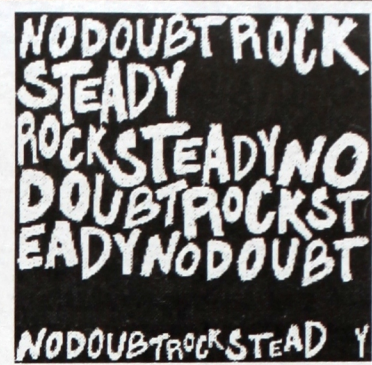 NODOUBTROCK
STEADY
ROCKSTEADYNO
DOUBTROCKST
EADYNODOUBT
NODOUBTROCKSTEAD Y